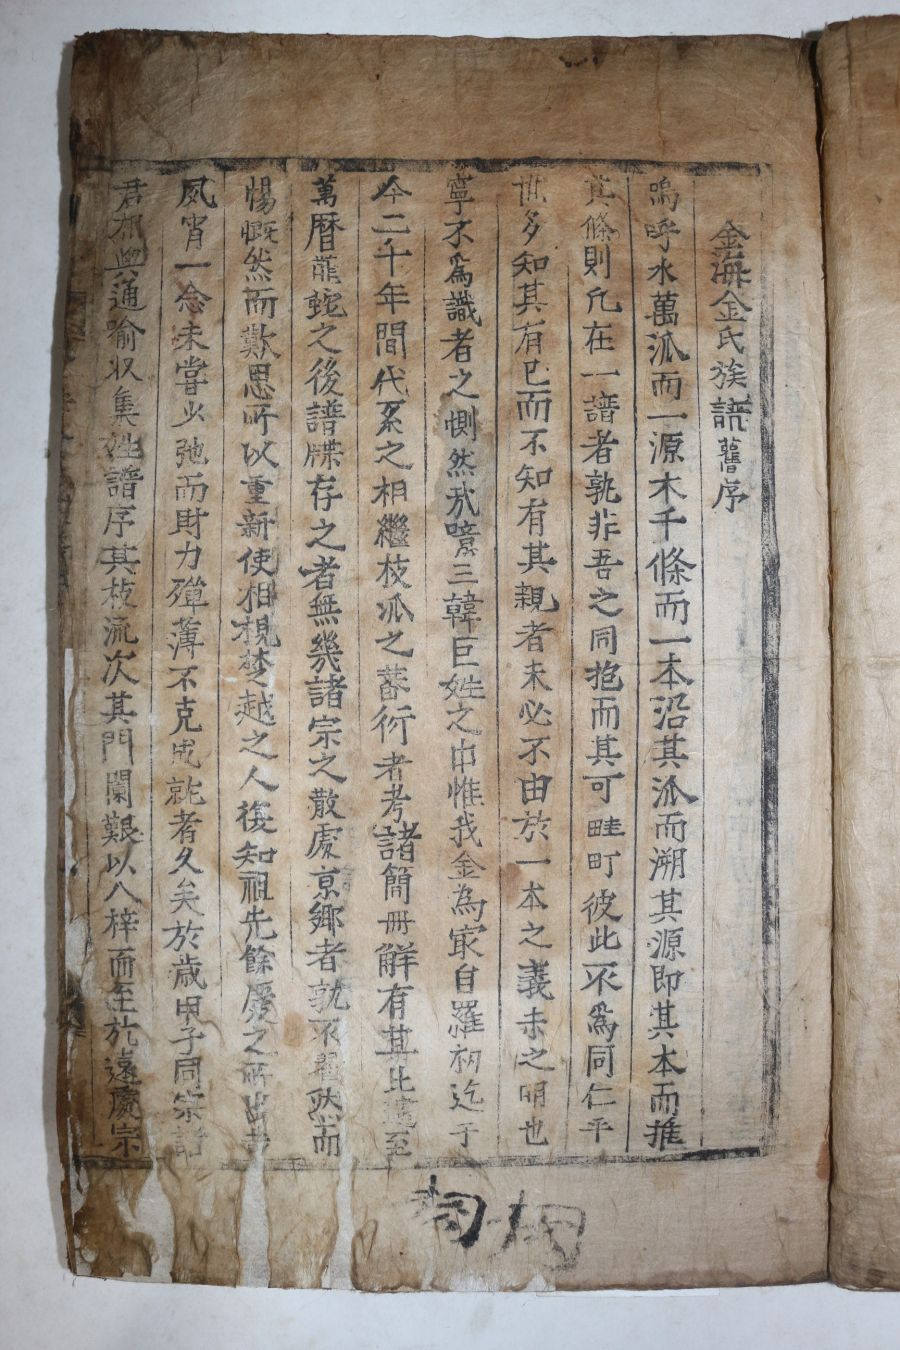 金海金氏族譜舊序
嗚呼水萬派而一源木千條而一本沿其派而溯其源即其本而推
其條則凡在一譜者孰非吾之同抱而其可畦町彼此不爲同仁乎
世多知其有己而不知有其親者未必不由於一本之義未之明也
寧不爲識者之惻然哉噫三韓巨姓之中惟我金為冣自羅初迄于
今二千年間代系之相繼枝派之蕃衍者考諸簡冊鮮有其比逮至
萬曆龍蛇之後譜牒存之者無幾諸宗之散處京鄉者孰不瞿然而
惕慨然而歎思所以重新使相視楚越之人後知祖先餘慶之所出
風宵一念未嘗少弛而財力殫薄不克成就者久矣於歲甲子同宗
君相與通喻収集姓譜序其枝流次其門闌艱以入梓而至於遠處宗